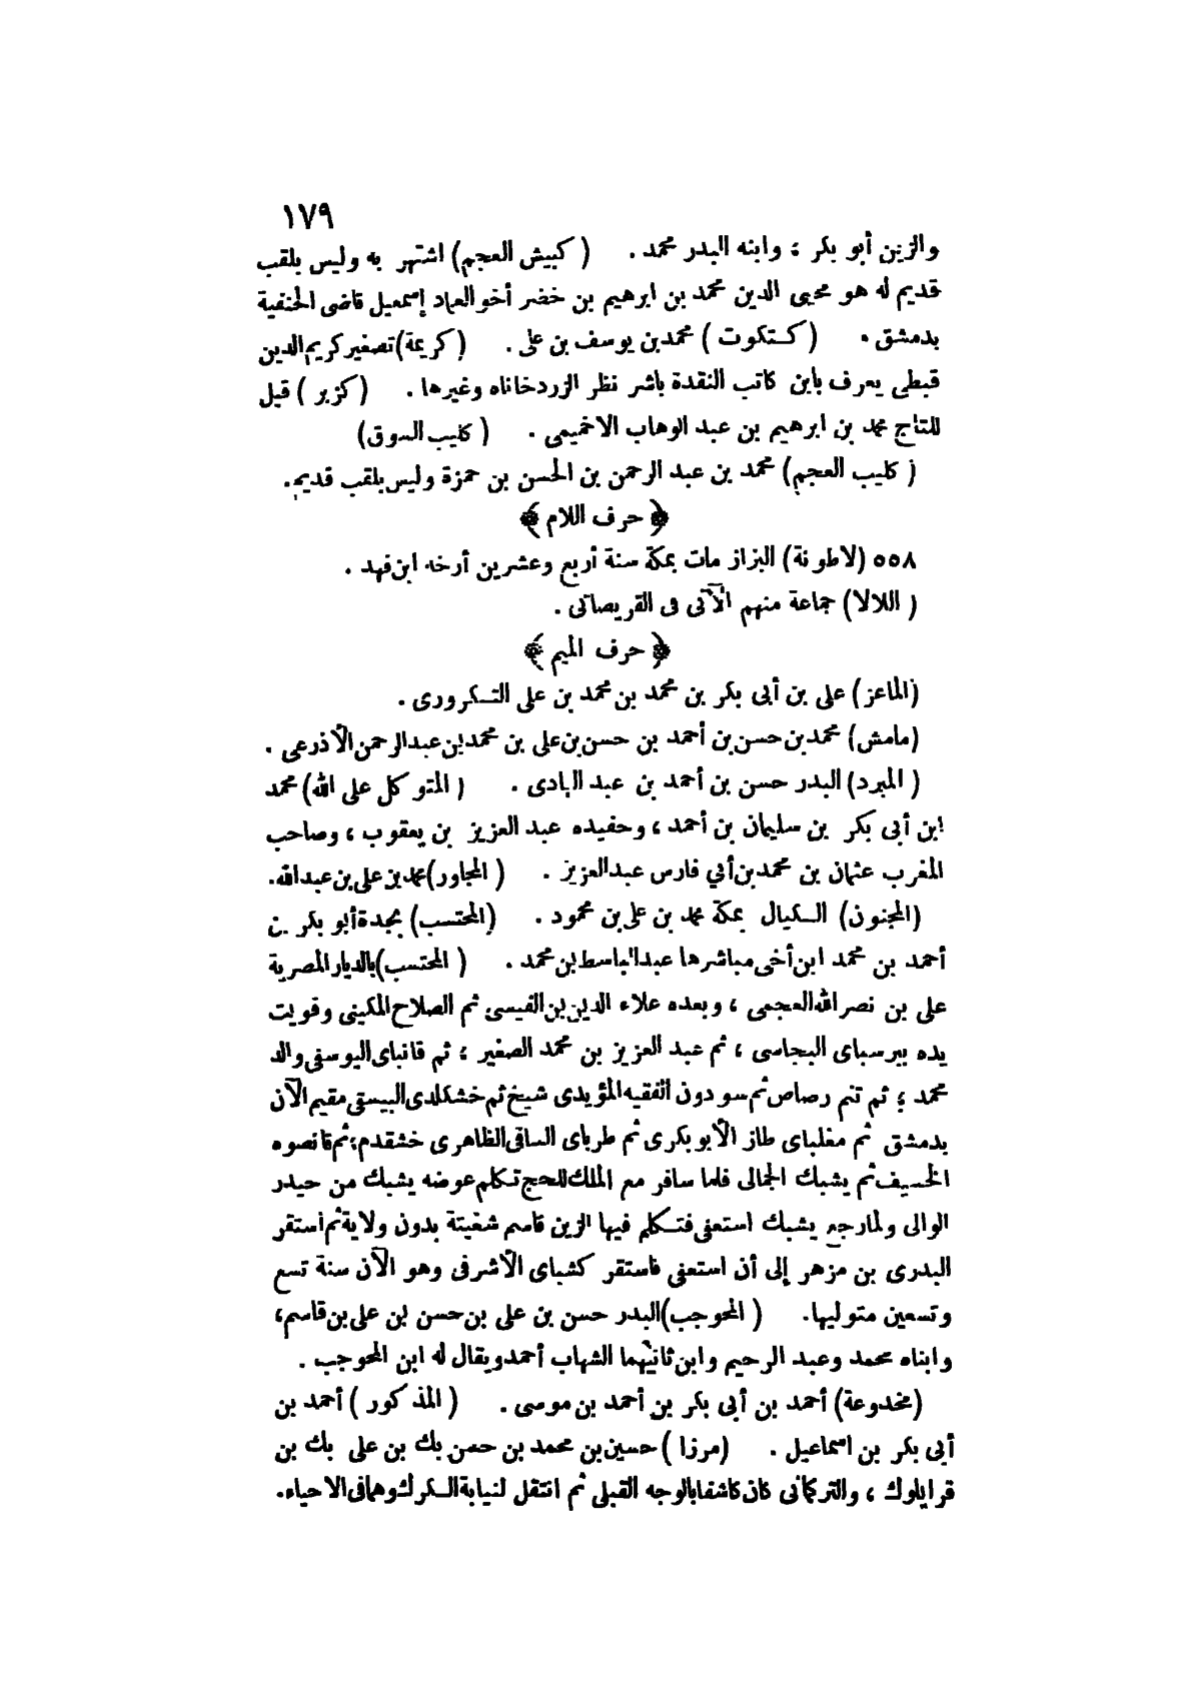 ١٧٩
والزين أبو بكر ؛ وابنه البدر محمد . ( كبيش العجم) اشتهر به وليس بلقب
قديم له هو محيي الدين محمد بن ابرهيم بن خضر أخو العماد إسمعيل قاضى الحنفية
بدمشق . ( كـتكوت ) محمد بن يوسف بن على . (كريمة) تصغير كريم الدين
قبطى يعرف بابن كاتب النقدة باشر نظر الزردخاناه وغيرها . (كزبر ) قيل
للتاج محمد بن ابرهيم بن عبد الوهاب الاخميمى . ( كليب السوق)
( كليب العجم) محمد بن عبد الرحمن بن الحسن بن حمزة وليس بلقب قديم .
﴿ حرف اللام ﴾
٥٥٨ (لاطونة) البزاز مات بمكة سنة أربع وعشرين أرخه ابن فهد .
( اللالا) جماعة منهم الآتى فى القريصاتى .
﴿ حرف الميم ﴾
(الماعز) على بن أبى بكر بن محمد بن محمد بن على التـكرورى .
(مامش) محمد بن حسن بن أحمد بن حسن بن على بن محمد بن عبد الرحمن الأذرعى .
( المبرد) البدر حسن بن أحمد بن عبد الهادى . ( المتوكل على الله) محمد
ابن أبى بكر بن سليمان بن أحمد ، وحفيده عبد العزيز بن يعقوب ، وصاحب
المغرب عثمان بن محمد بن أبي فارس عبد العزيز . ( المجاور) محمد بن على بن عبد الله .
(المجنون) الـكيال بمكة محمد بن على بن محمود . (المحتسب) بجدة أبو بكر بن
أحمد بن محمد ابن أخى مباشرها عبد الباسط بن محمد . ( المحتسب) بالديار المصرية
على بن نصر الله العجمى ، وبعده علاء الدين بن الفيسى ثم الصلاح المكينى وقويت
يده ببرسباى البجاسى ، ثم عبد العزيز بن محمد الصغير ؛ ثم قانباى اليوسفى والد
محمد ؛ ثم تنم رصاص ثم سودون الفقيه المؤيدى شيخ ثم خشكلدى البيسقى مقيم الآن
بدمشق ثم مغلباى طاز الأبو بكرى ثم طرباى الساقى الظاهرى خشقدم ؛ ثم قانصوه
الخسيف ثم يشبك الجمالى فلما سافر مع الملك للحج تـكلم عوضه يشبك من حيدر
الوالى ولما رجع يشبك استعفى فتـكلم فيها الزين قاسم شغيتة بدون ولاية ثم استقر
البدرى بن مزهر إلى أن استعفى فاستقر كشباى الأشرفى وهو الآن سنة تسع
وتسعين متوليها . ( المحوجب) البدر حسن بن على بن حسن بن على بن قاسم ،
وابناه محمد وعبد الرحيم وابن ثانيهما الشهاب أحمد ويقال له ابن المحوجب .
(مخدوعة) أحمد بن أبى بكر بن أحمد بن موسى . ( المذكور ) أحمد بن
أبى بكر بن اسماعيل . (مرزا ) حسين بن محمد بن حسن بك بن على بك بن
قرايلوك ، والتركمانى كان كاشفا بالوجه القبلى ثم انتقل لنيابة الـكرك وهما فى الاحياء .